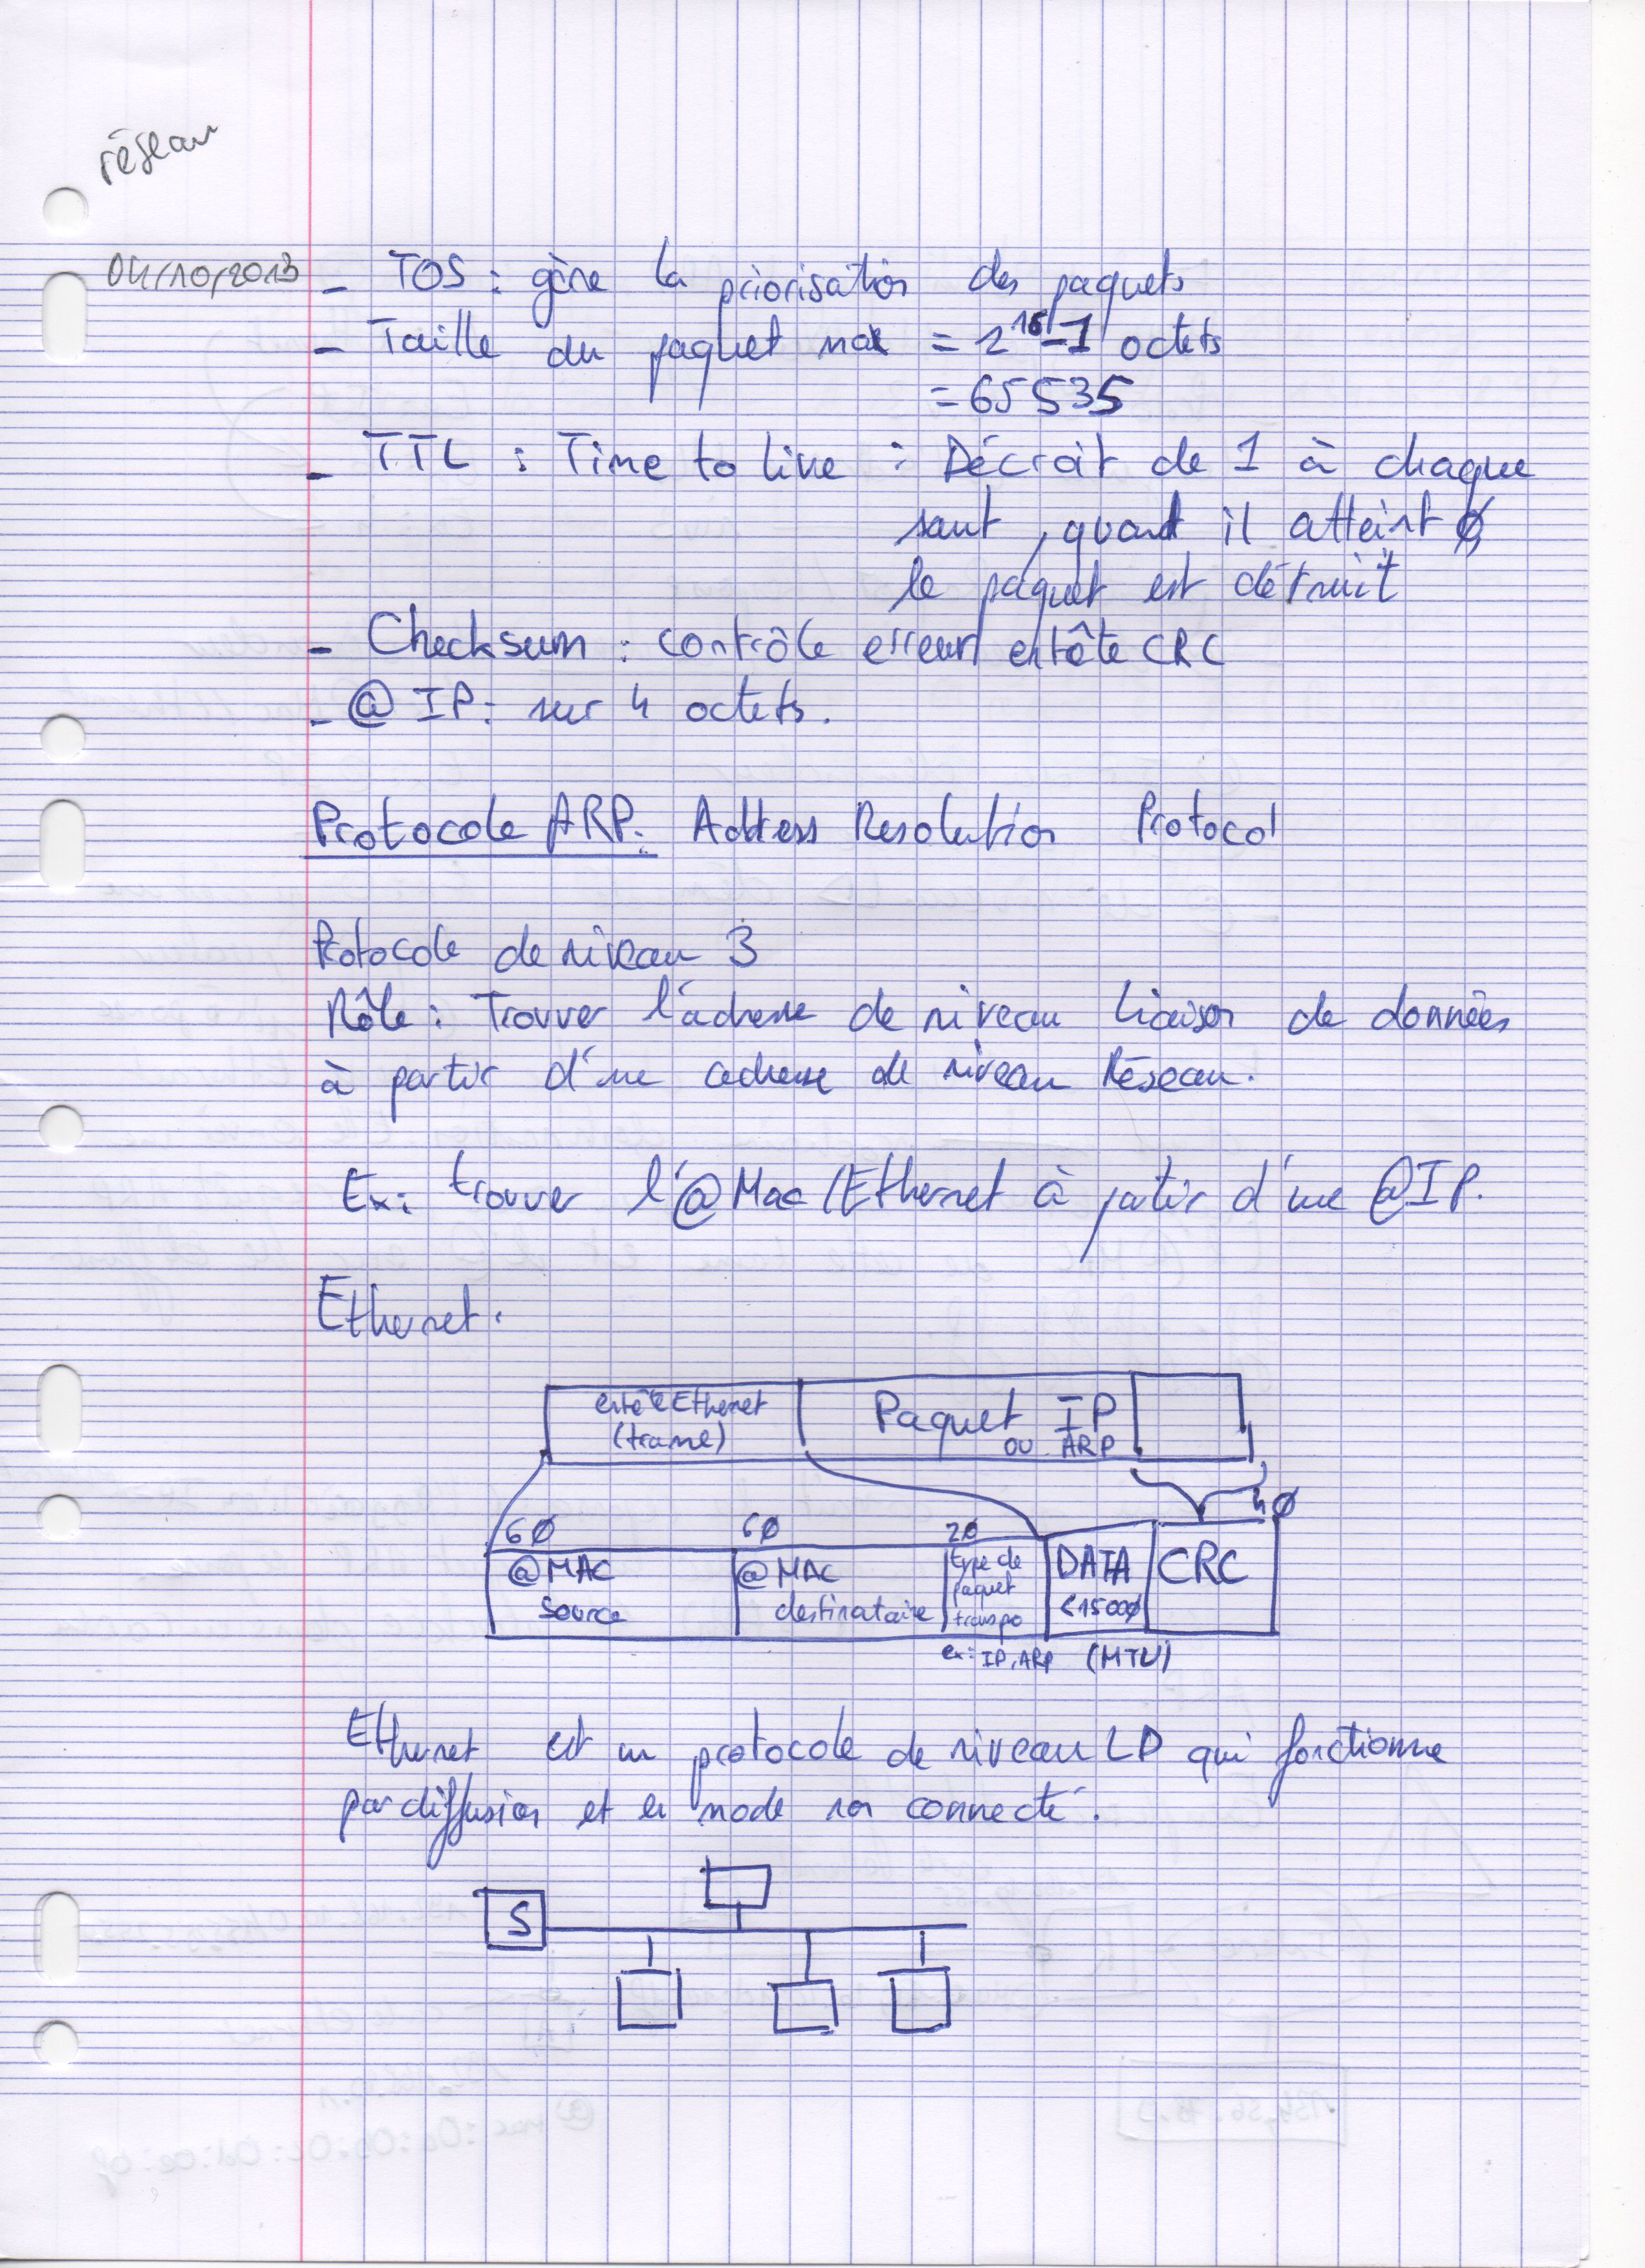 réseau
04/10/2013
- TOS : gère la priorisation des paquets
- Taille du paquet max = 2^16-1 octets
= 65535
- TTL : Time to live : Décroit de 1 à chaque
saut, quand il atteint 0
le paquet est détruit
- Checksum : contrôle erreur entête CRC
- @ IP : sur 4 octets.
Protocole ARP: Address Resolution Protocol
Protocole de niveau 3
Rôle : Trouver l'adresse de niveau liaison de données
à partir d'une adresse de niveau Réseau.
Ex: trouver l'@Mac/Ethernet à partir d'une @IP.
Ethernet :
entête Ethernet Paquet IP
(trame) ou ARP
6Ø 6Ø 2Ø 4Ø
@MAC @MAC type de DATA CRC
source destinataire paquet <1500Ø
transpo
ex: IP, ARP (MTU)
Ethernet est un protocole de niveau LD qui fonctionne
par diffusion et en mode non connecté.
S